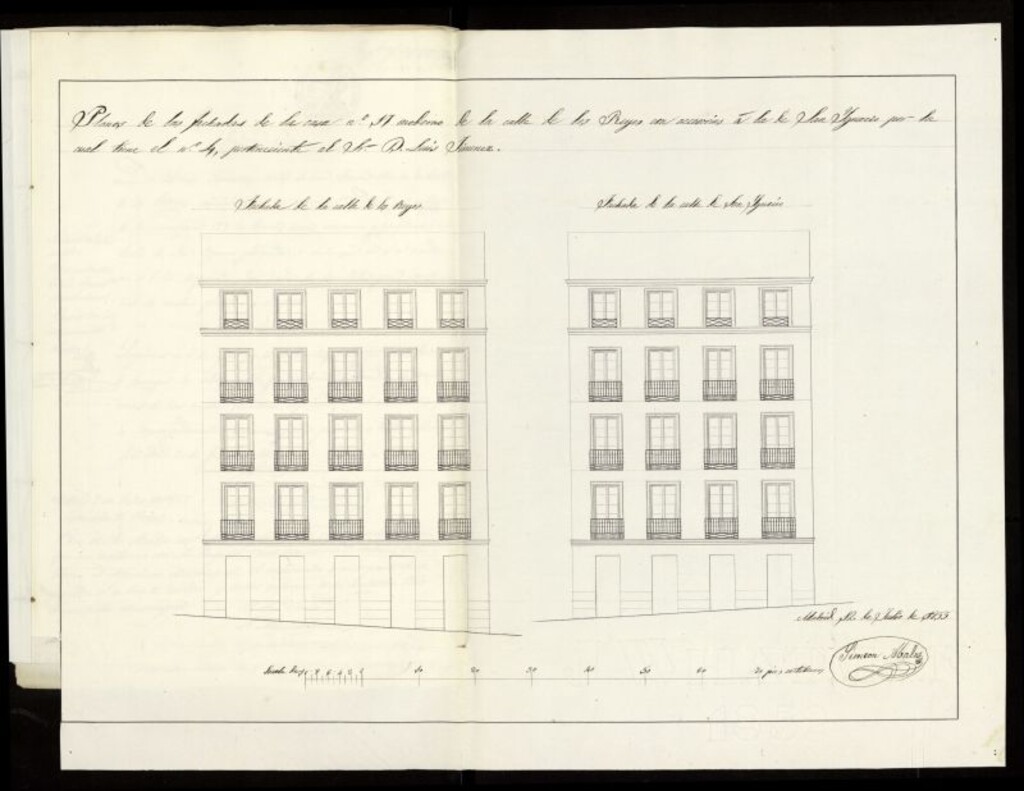 Planos de las fachadas de la casa nº 17 moderno de la calle de los Reyes con accesorias á la de San Ygnacio por la
cual tiene el nº 4, perteneciente al Sr. D. Luis Jimenez.
Fachada de la calle de los Reyes
Fachada de la calle de San Ygnacio
Madrid de de 1855
Escala de 8 6 4 2 10 20 30 40 50 60 70 pies castellanos
Simeon